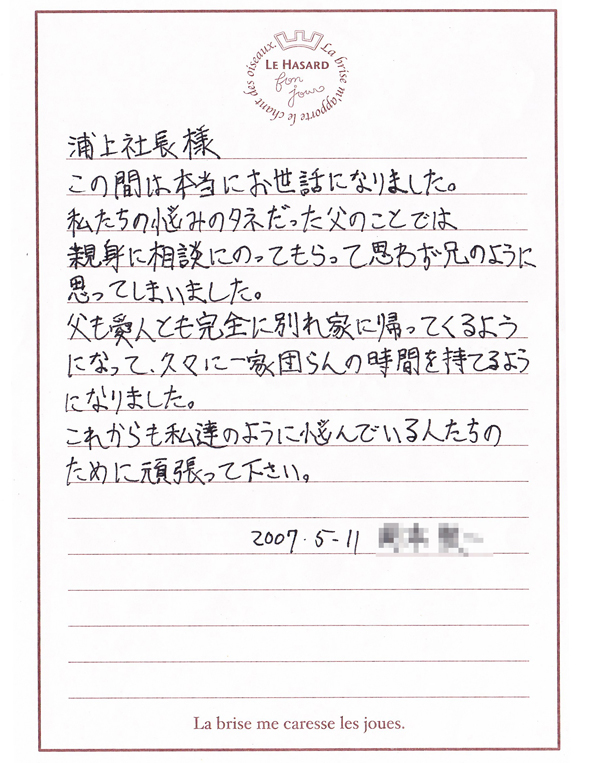 La brise m'apporte le chant des oiseaux.
LE HASARD
bon
jour
浦上社長様
この間は本当にお世話になりました。
私たちの悩みのタネだった父のことでは
親身に相談にのってもらって思わず兄のように
思ってしまいました。
父も愛人とも完全に別れ家に帰ってくるよう
になって、久々に一家団らんの時間を持てるよう
になりました。
これからも私達のように悩んでいる人たちの
ために頑張って下さい。
2007.5-11
La brise me caresse les joues.